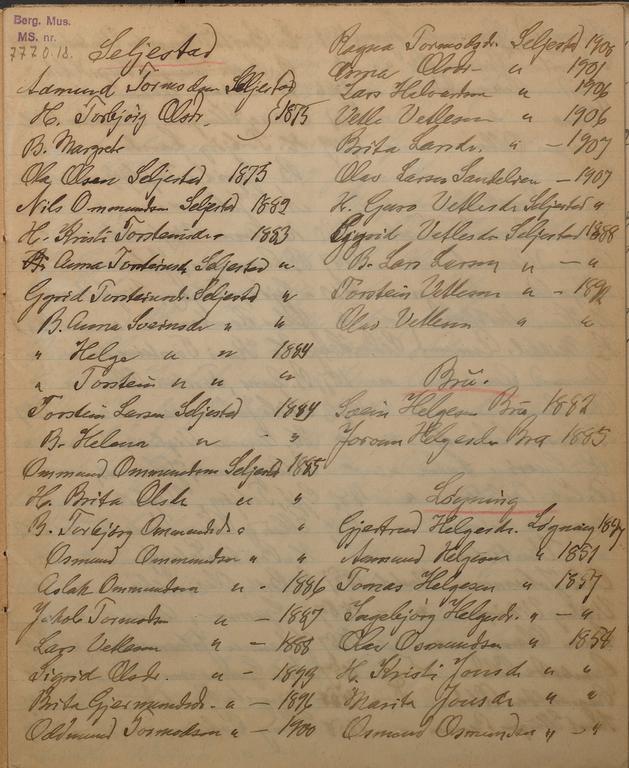 Berg. Mus.
MS. nr.
7720.18.
Seljestad
Aamund Tormodsen Seljestad
H. Torbjörg Olsdr. } 1875
B. Margrete
Olaf Olsen Seljestad 1873
Nils Ommundsen Seljestad 1882
H. Kristi Torsteinsdr 1883
Anna Torsteinsdr Seljestad "
Gyrid Torsteinsdr. Seljestad "
B. Anna Sveinsdr " "
" Helge " " 1884
" Torstein " " "
Torstein Larsen Seljestad 1884
B. Helena " "
Ommund Ommundsen Seljestad 1885
H. Brita Olsdr " "
B. Torbjörg Ommundsdr " "
Osmund Ommundsen " "
Aslak Ommundsen " - 1886
Jakob Tormodsen " - 1887
Lars Vetlesen " - 1888
Sigrid Olsdr. " - 1899
Brita Gjermundsdr. " - 1896
Oddmund Tormodsen " - 1900
Ragna Tormodsdr. Seljestad 1900
Olsdr " 1901
Lars Halvardsen " 1906
Vetle Vetlesen " 1906
Brita Larsdr. " - 1907
Olav Larsen - 1907
H. Guro Vetlesdr Seljestad "
Sigrid Vetlesdr Seljestad 1888
B. Lars Larsen " - "
Torstein Vetlesen " -
Olav Vetlesen " "
Bru.
Svein Helgesen Bru 1882
Joran Helgesdr Bru 1885
Løyning
Gjertrud Helgesdr. Løyning
Aamund Helgesen " 1851
Tomas Helgesen " 1857
Ingebjörg Helgesdr. " - "
Olav Osmundsen " 1854
H. Kristi Jonsdr " "
Marita Jonsdr " "
Osmund Osmundsen " - "